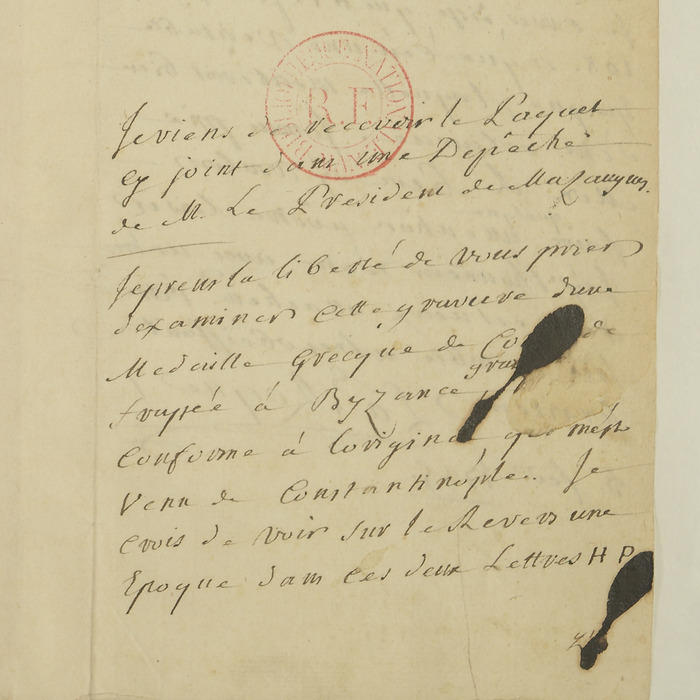 BIBLIOTHEQUE NATIONALE
R.F.
Je viens de recevoir le Paquet
cy joint dans une Depêche
de M. Le President de Mazaugues.
Je prens la liberté de vous prier
d'examiner cette gravure d'une
Medaille Grecque de
frappée à Byzance
Conforme à l'origina qui m'est
Venu de Constantinople. Je
crois de voir sur le Revers une
Epoque dans ces deux Lettres H P